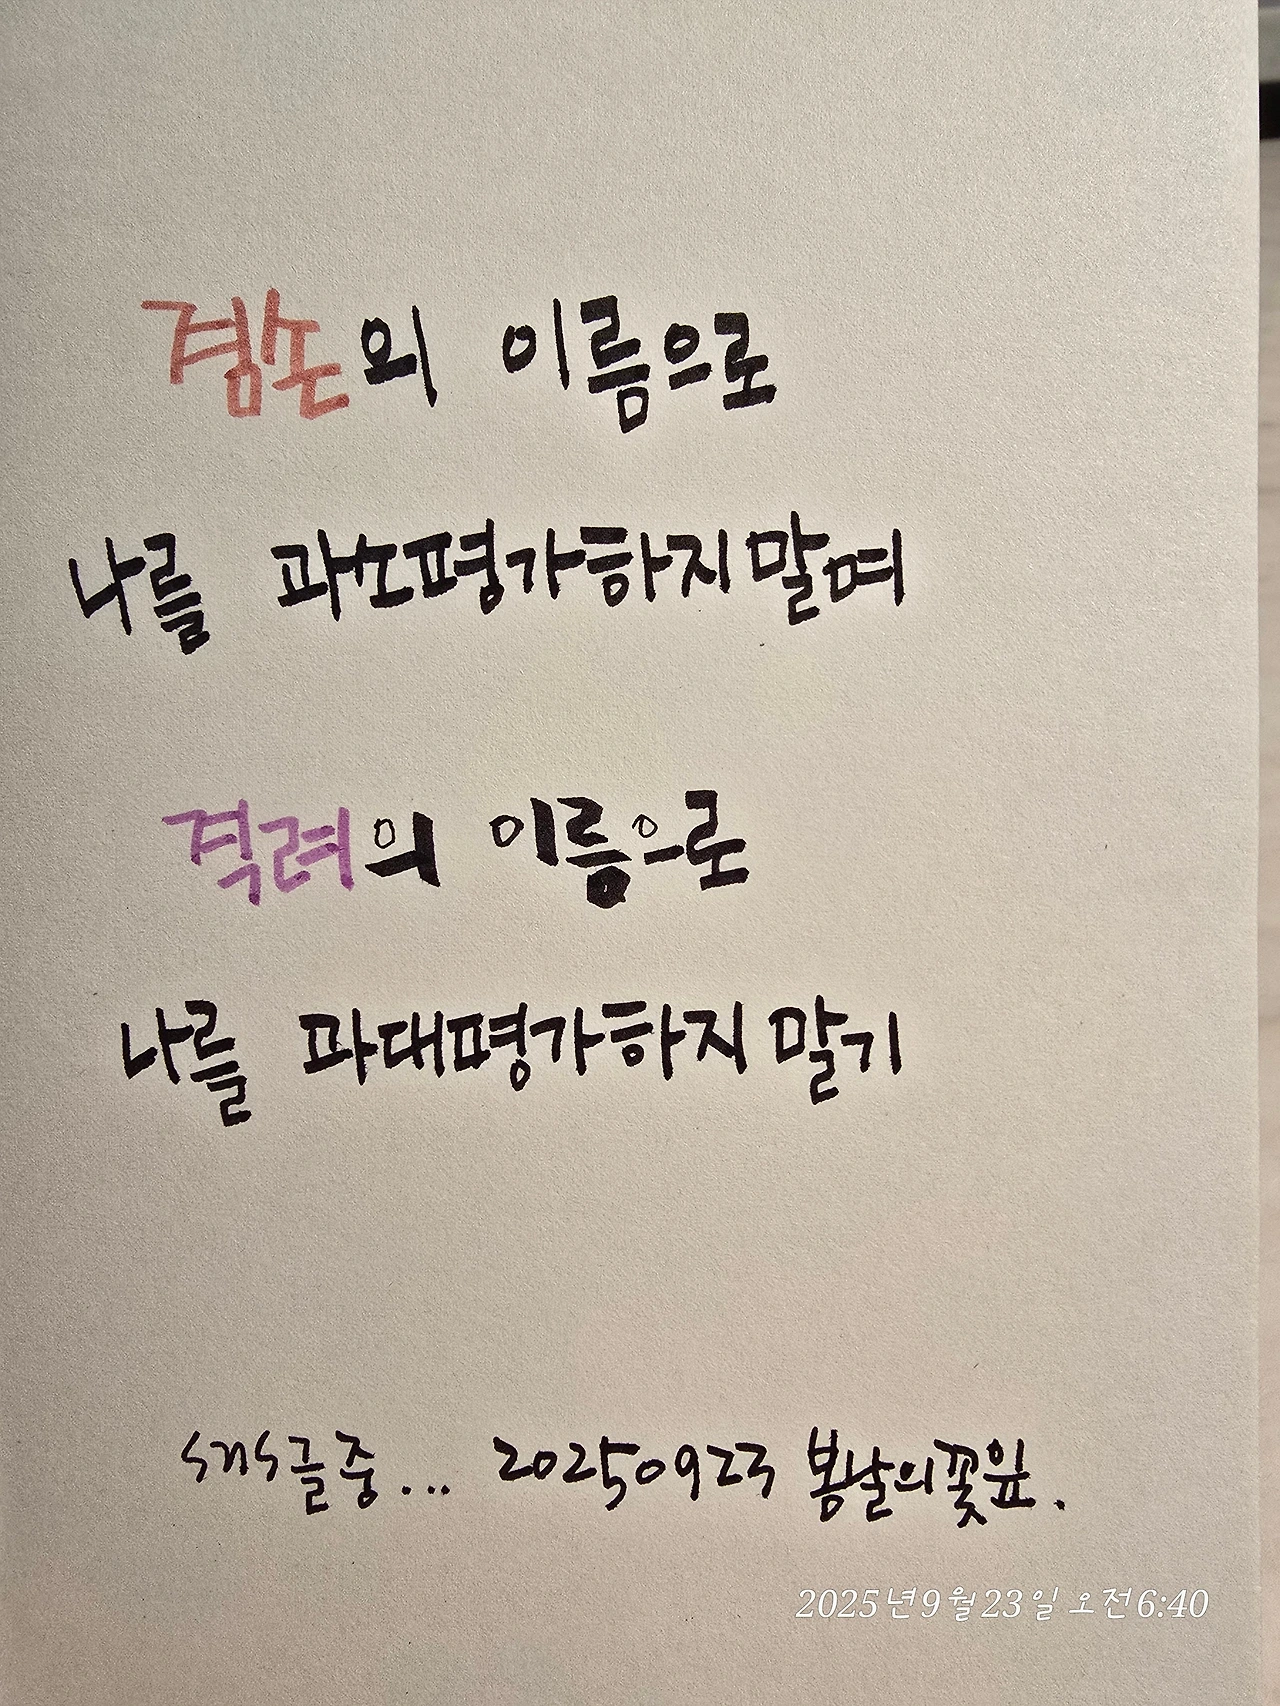 겸손의 이름으로
나를 과소평가하지 말며
격려의 이름으로
나를 과대평가하지 말기
sns글중... 20250923 봄날의꽃잎.
2025년 9월 23일 오전 6:40